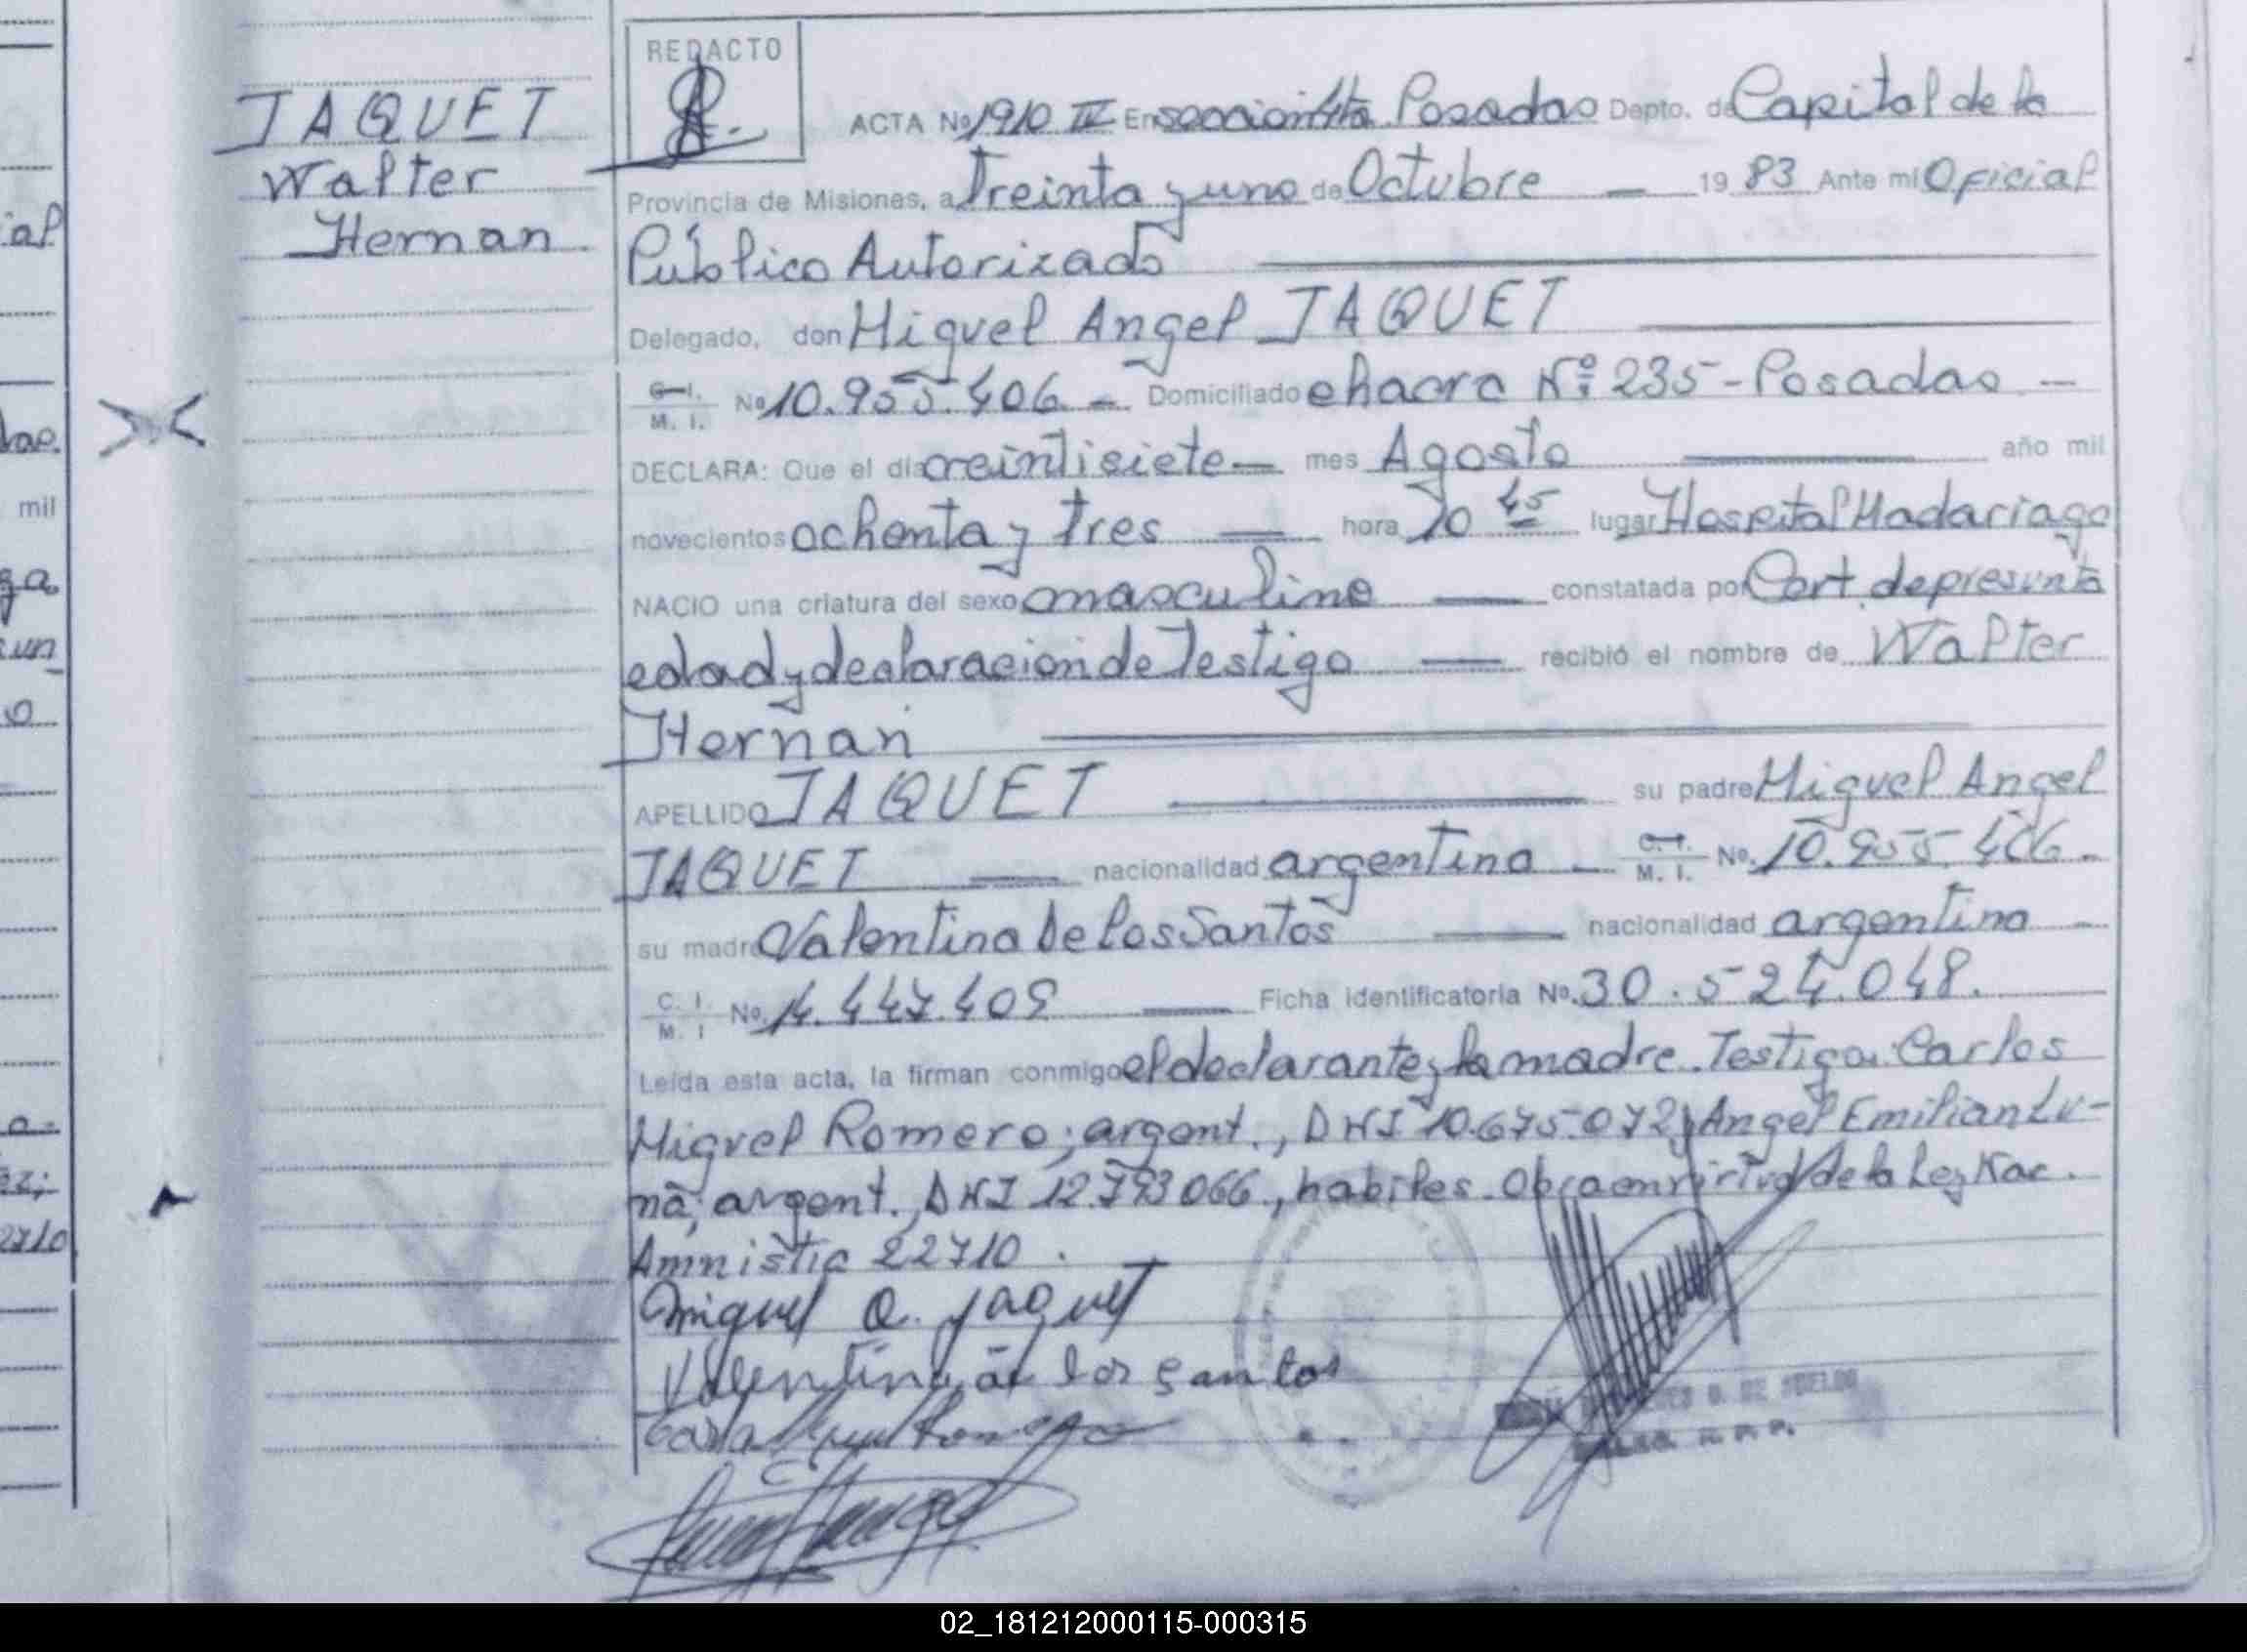 REDACTO
JAQUET
Walter
Hernan
ACTA Nº 1910 IV En seccion 4ta Posadas Depto. de Capital de la
Provincia de Misiones, a Treinta y uno de Octubre — 19 83 Ante mi Oficial
Público Autorizado
Delegado, don Miguel Angel JAQUET
C. I. M. I. Nº 10.955.406 — Domiciliado chacra Nº 235 - Posadas —
DECLARA: Que el día veintisiete — mes Agosto — año mil
novecientos ochenta y tres — hora 20 45 lugar Hospital Madariaga
NACIO una criatura del sexo masculino — constatada por Cert. de presunta
edad y declaracion de Testigo — recibió el nombre de Walter
Hernan
APELLIDO JAQUET — su padre Miguel Angel
JAQUET — nacionalidad argentina — C. I. M. I. Nº 10.955.406 -
su madre Valentina De los Santos — nacionalidad argentina —
C. I. M. I Nº 14.447.409 — Ficha identificatoria Nº 30.524.048.
Leída esta acta, la firman conmigo el declarante y la madre. Testigos: Carlos
Miguel Romero, argent., DNI 10.675.072 y Angel Emilian Lu-
na, argent., DNI 12.793066, habiles. Obra en virtud de la Ley Nac.
Amnistia 22710.
Miguel A. Jaquet
Valentina de los Santos
ial
mil
ga
un
o
a-
ez;
2710
02_181212000115-000315